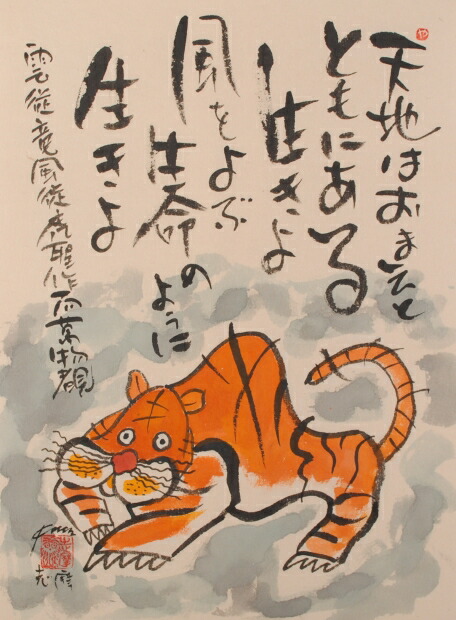 天地はおまえと
ともにある
生きよ
風をよぶ
生命の
ように
生きよ
雲従竜風従虎聖作而萬物覩